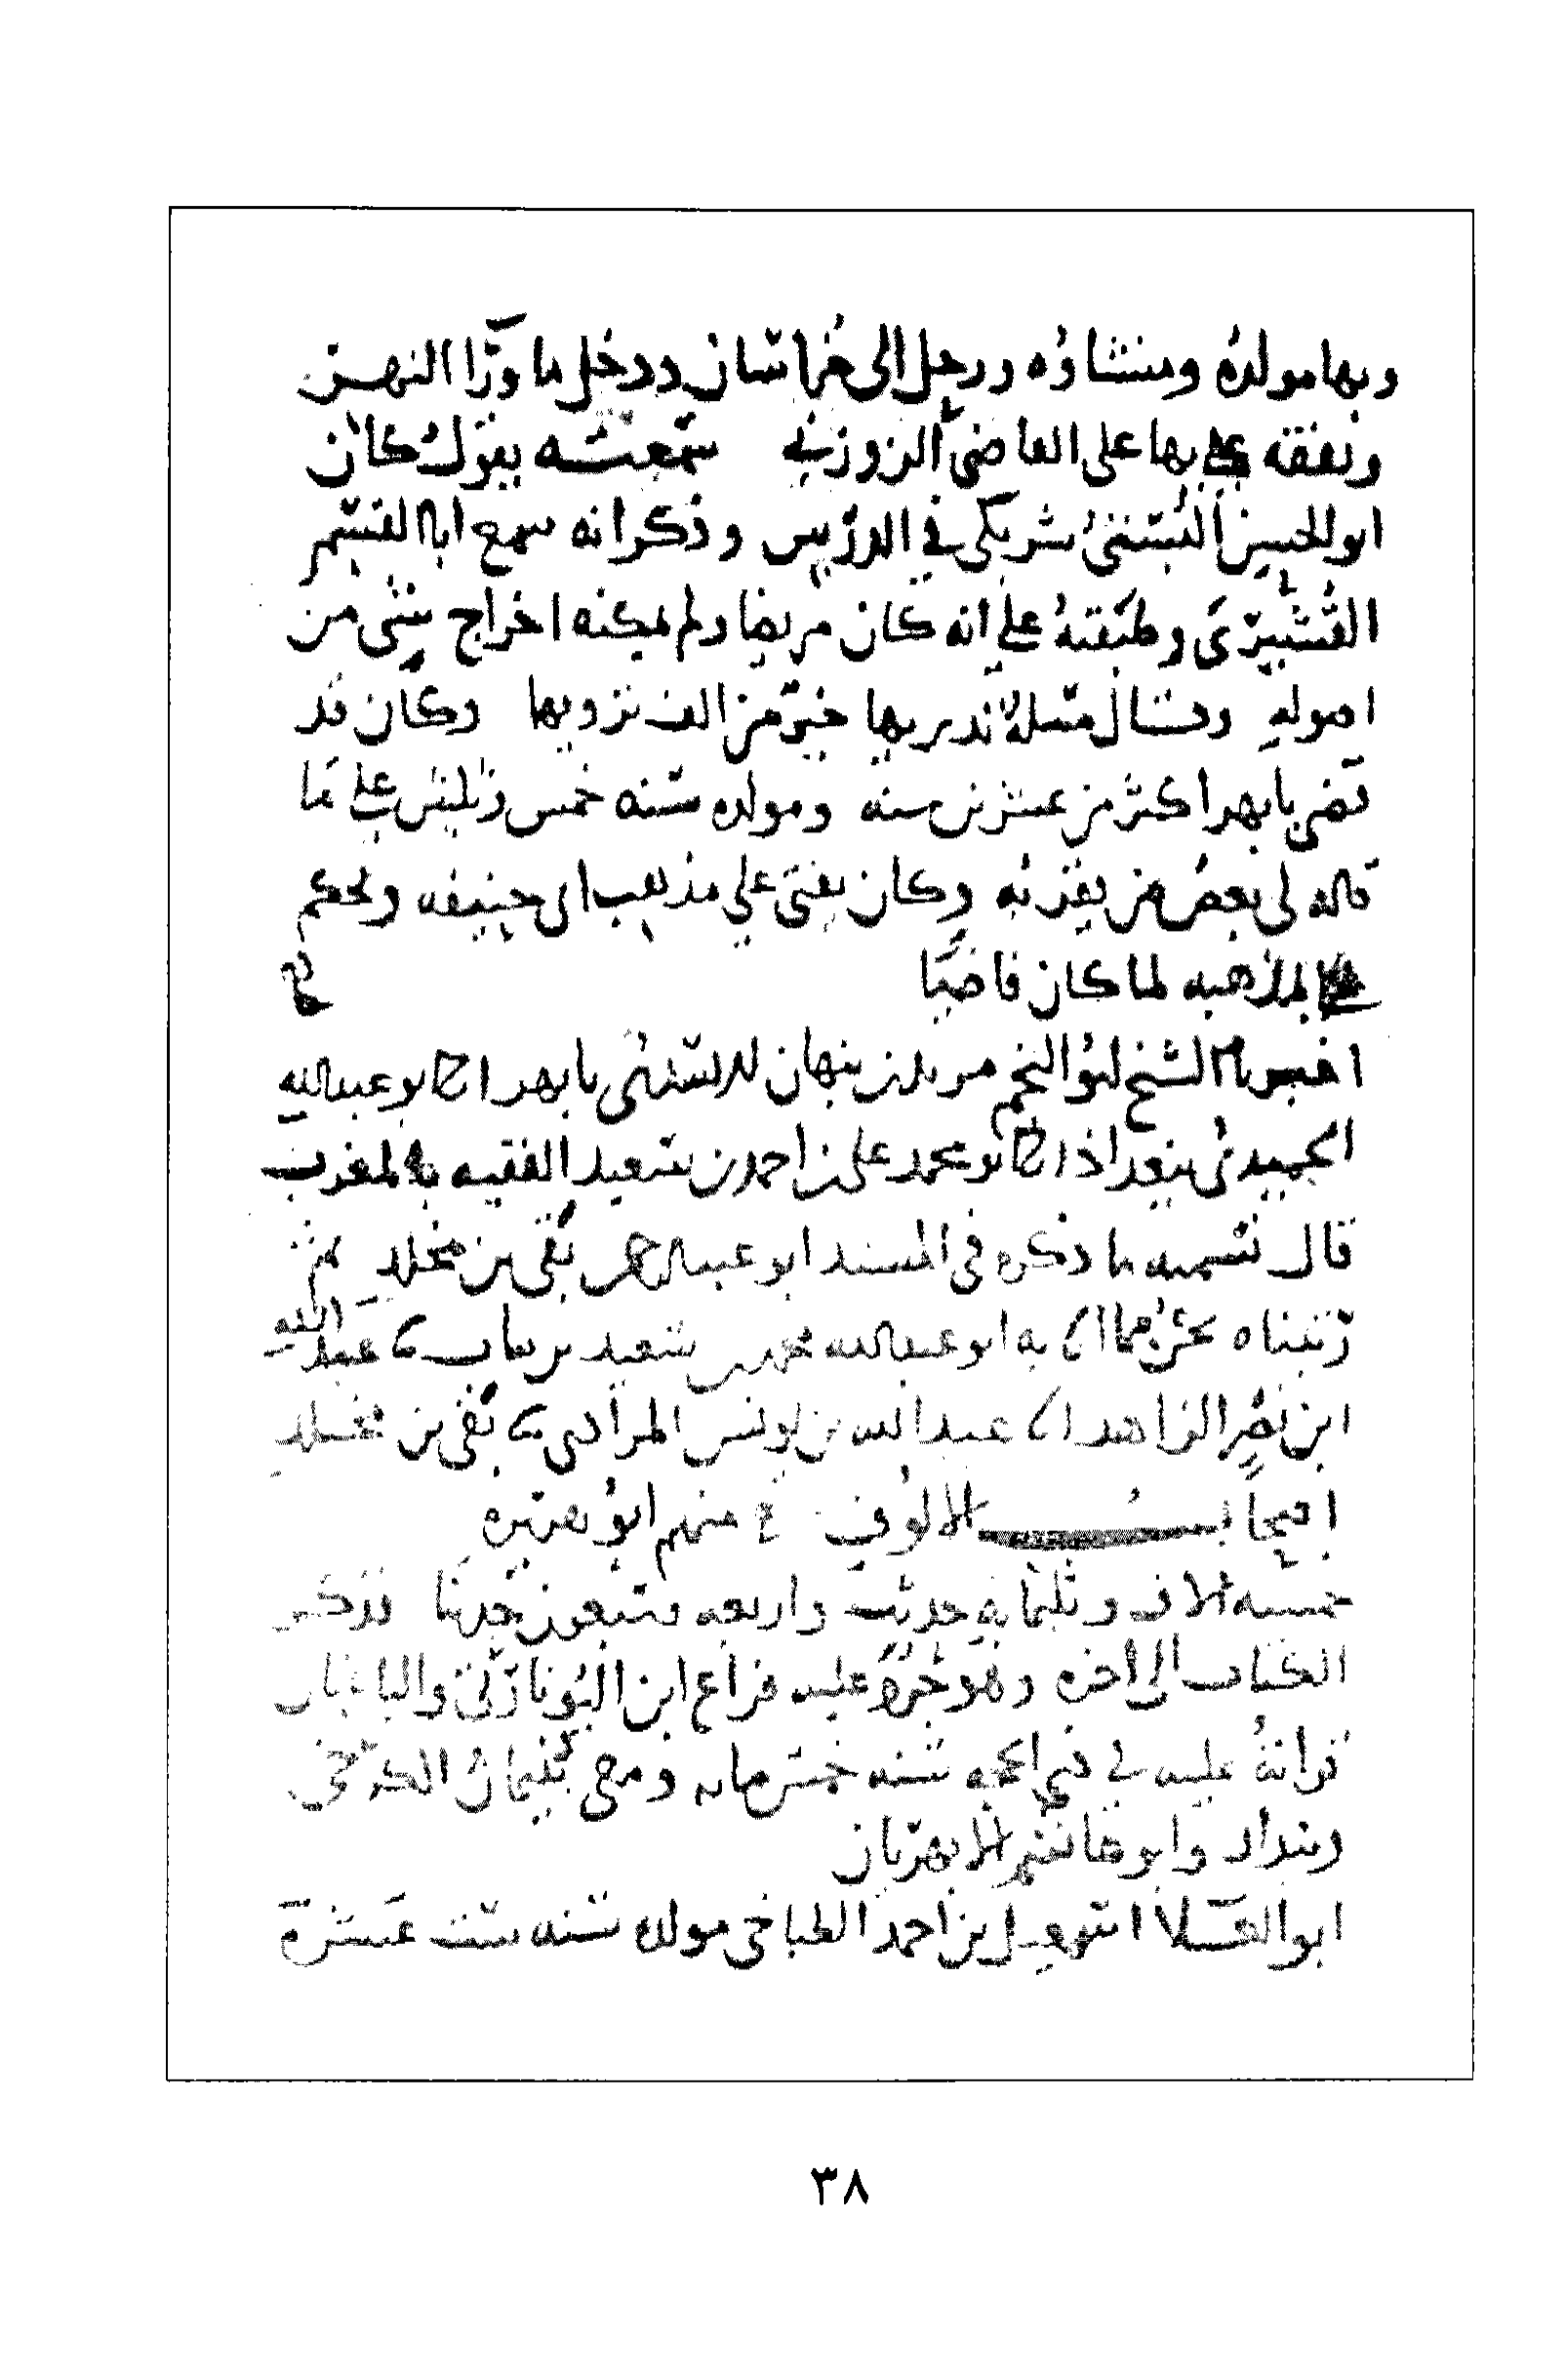 وبها مولده ومنشاؤه ورحل الى خراسان ودخل ما ورا النهر
وتفقه بها على القاضي الزوزني سمعته يقول كان
ابو الحسين البستي شريكي في الدرس وذكر انه سمع ابا القسم
القشيري وطبقته على انه كان مريضا ولم يمكنه اخراج شي من
اصوله وقال مسله تدريها خير من الف ترويها وكان قد
قضى بابهر اكثر من عشرين سنه ومولده سنه خمس وثلثين على ما
قاله لي بعض من يقربه وكان يفتي على مذهب ابي حنيفه ويحكم
بمذهبه لما كان قاضيا
اخبرنا الشيخ ابو النجم بابهر انا ابو عبد الله
الحميدي ببغداد انا ابو محمد علي بن احمد بن سعيد الفقيه بالمغرب
قال تسميه ما ذكره في المسند ابو عبد الرحمن بقي بن مخلد ثم
رتبناه نحن مما انا به ابو عبد الله محمد بن سعيد بن نبات نا عبد الله
ابن نصر الزاهد انا عبد الله بن يونس المرادي نا بقي بن مخلد
اصحاب الالوف ع منهم ابو هريره
خمسه الاف وثلثمايه حديث واربعه وسبعون حديثا فذكر
الكتاب الى اخره وهو جزء عليه فراغ ابن اليونارتي
قراته عليه في ذي الحجه سنه خمس مايه ومعي سليمان الكرخي
وبندار وابو غانم الابهريان
ابو العلا اسمعيل بن احمد الطباخي مولده سنه ست عشرة
٣٨